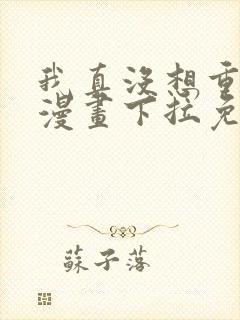 我真没想重
漫畫下拉免
蘇子落